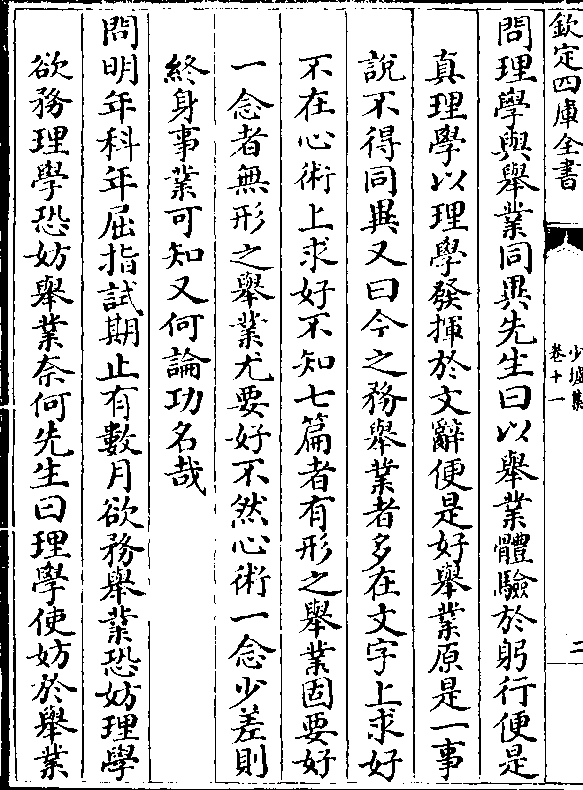 欽定四庫全書
少墟集
卷十一
二
問理學與舉業同異先生曰以舉業體驗於躬行便是
真理學以理學發揮於文辭便是好舉業原是一事
說不得同異又曰今之務舉業者多在文字上求好
不在心術上求好不知七篇者有形之舉業固要好
一念者無形之舉業尤要好不然心術一念少差則
終身事業可知又何論功名哉
問明年科年屈指試期止有數月欲務舉業恐妨理學
欲務理學恐妨舉業奈何先生曰理學使妨於舉業